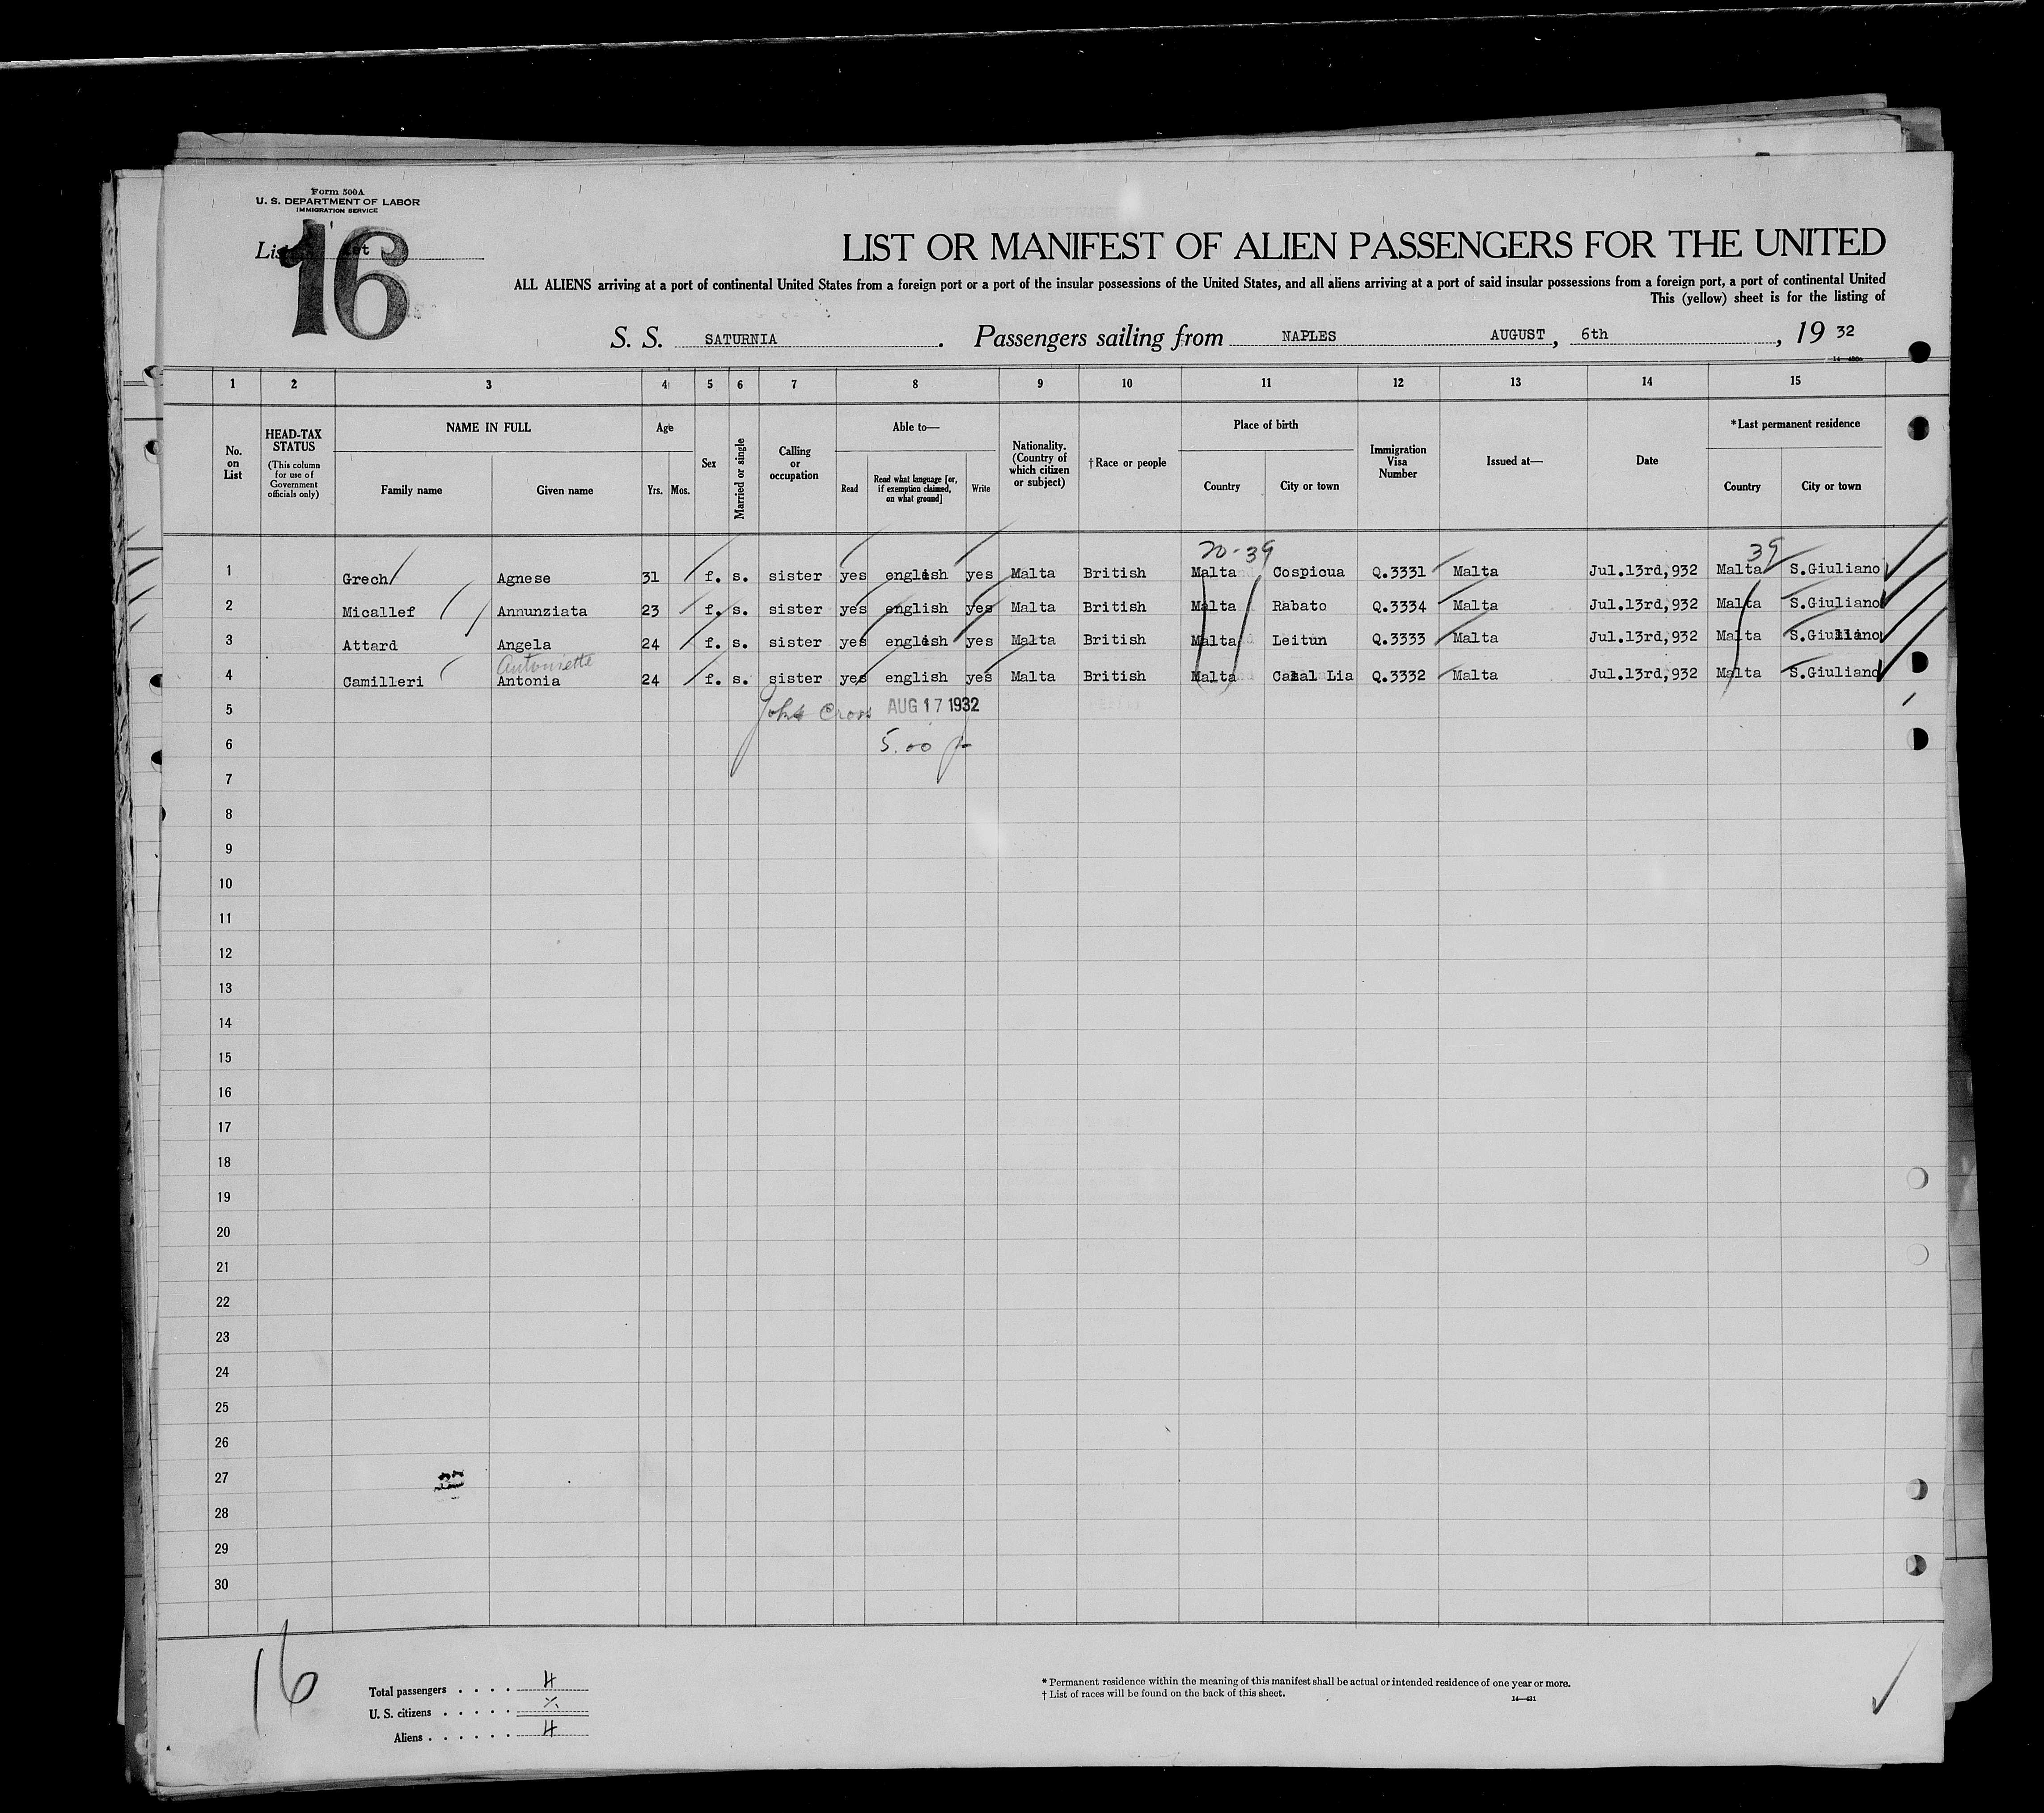 Form 500A
U. S. DEPARTMENT OF LABOR
IMMIGRATION SERVICE
16
LIST OR MANIFEST OF ALIEN PASSENGERS FOR THE UNITED
ALL ALIENS arriving at a port of continental United States from a foreign port or a port of the insular possessions of the United States, and all aliens arriving at a port of said insular possessions from a foreign port, a port of continental United
This (yellow) sheet is for the listing of
S. S. SATURNIA. Passengers sailing from NAPLES AUGUST, 6th, 19 32
1 2 3 4 5 6 7 8 9 10 11 12 13 14 15
No. on List
HEAD-TAX STATUS (This column for use of Government officials only)
NAME IN FULL
Family name Given name
Age
Yrs. Mos.
Sex
Married or single
Calling or occupation
Able to—
Read
Read what language [or, if exemption claimed, on what ground]
Write
Nationality. (Country of which citizen or subject)
†Race or people
Place of birth
Country City or town
Immigration Visa Number
Issued at—
Date
*Last permanent residence
Country City or town
20-39 39
1 Grech Agnese 31 f. s. sister yes english yes Malta British Malta Cospicua Q.3331 Malta Jul.13rd,932 Malta S.Giuliano
2 Micallef Annunziata 23 f. s. sister yes english yes Malta British Malta Rabato Q.3334 Malta Jul.13rd,932 Malta S.Giuliano
3 Attard Angela 24 f. s. sister yes english yes Malta British Malta Leitun Q.3333 Malta Jul.13rd,932 Malta S.Giuliano
Antoniette
4 Camilleri Antonia 24 f. s. sister yes english yes Malta British Malta Casal Lia Q.3332 Malta Jul.13rd,932 Malta S.Giuliano
5 AUG 17 1932
6 5.00
7
8
9
10
11
12
13
14
15
16
17
18
19
20
21
22
23
24
25
26
27
28
29
30
16
Total passengers . . . . 4
U. S. citizens . . . . .
Aliens . . . . . . 4
* Permanent residence within the meaning of this manifest shall be actual or intended residence of one year or more.
† List of races will be found on the back of this sheet.